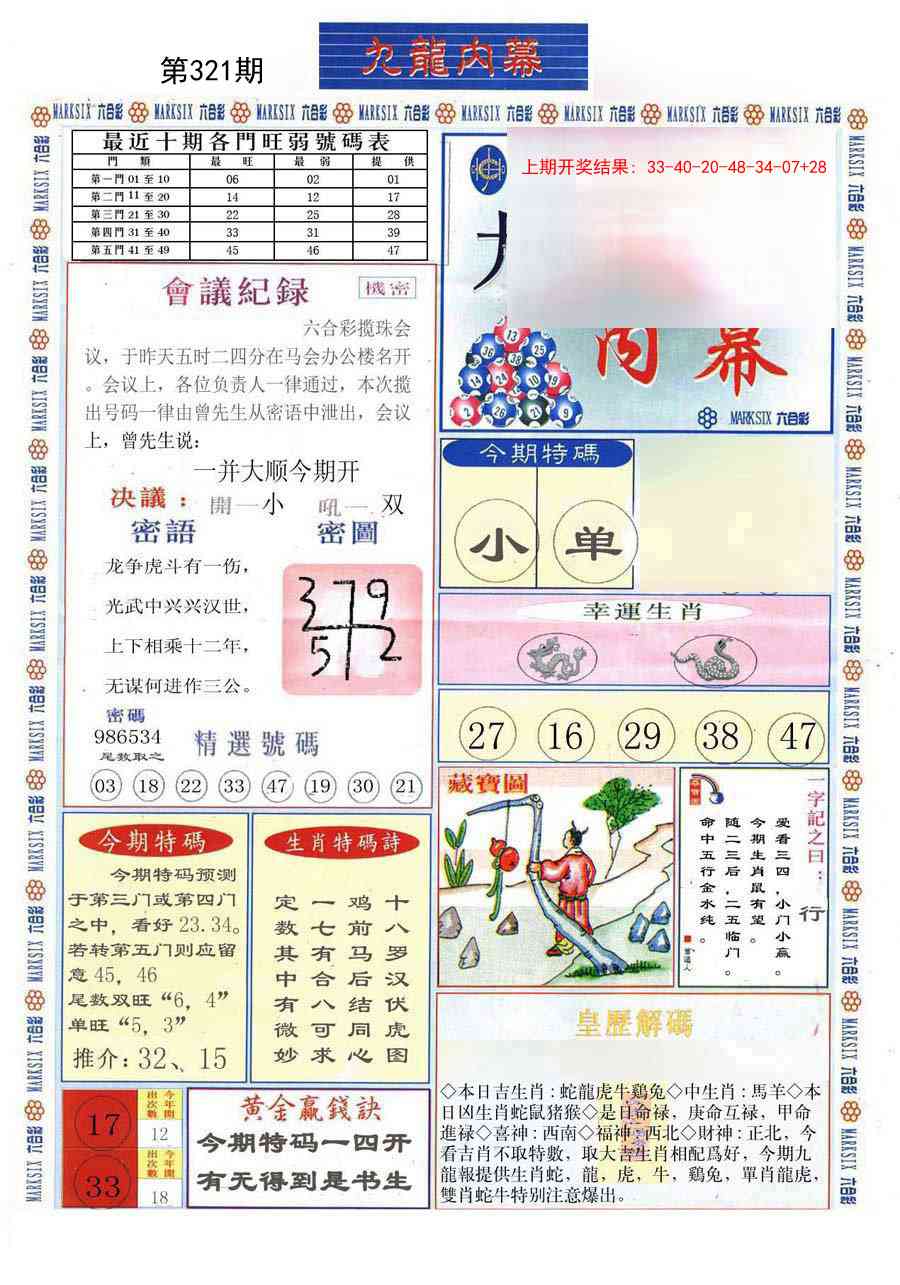 第321期
九龍内幕
MARKSIX 六合彩 MARKSIX 六合彩 MARKSIX 六合彩 MARKSIX 六合彩 MARKSIX 六合彩 MARKSIX 六合彩 MARKSIX 六合彩 MARKSIX 六合彩
最近十期各門旺弱號碼表
門 類 最 旺 最 弱 提 供
第一門 01 至 10 06 02 01
第二門 11 至 20 14 12 17
第三門 21 至 30 22 25 28
第四門 31 至 40 33 31 39
第五門 41 至 49 45 46 47
會議紀録
機密
六合彩揽珠会
议，于昨天五时二四分在马会办公楼名开
。会议上，各位负责人一律通过，本次揽
出号码一律由曾先生从密语中泄出，会议
上，曾先生说：
一并大顺今期开
决議：開一小 吼一 双
密語
密圖
龙争虎斗有一伤，
光武中兴兴汉世，
上下相乘十二年，
无谋何进作三公。
379
512
密碼
986534
尾数取之
精選號碼
03 18 22 33 47 19 30 21
上期开奖结果：33-40-20-48-34-07+28
内幕
13
36 38 25
14 24 10 19
2 26 21 9
MARKSIX 六合彩
今期特碼
小 单
幸運生肖
27 16 29 38 47
藏寶圖
一字記之曰：行
爱看三四，小门小赢。
今期生肖鼠有望。
随二三后，二五临门。
命中五行金水纯。
今期特碼
今期特码预测
于第三门或第四门
之中，看好 23.34。
若转第五门则应留
意 45，46
尾数双旺“6，4”
单旺“5，3”
推介：32、15
生肖特碼詩
十八罗汉伏虎图
鸡前马后结同心
一七有合八可求
定数其中有微妙
17
今年開出次數
12
33
今年開出次數
18
黄金贏錢訣
今期特码一四开
有无得到是书生
皇歷解碼
◇本日吉生肖：蛇龍虎牛鷄兔◇中生肖：馬羊◇本
日凶生肖蛇鼠猪猴◇是日命禄，庚命互禄，甲命
進禄◇喜神：西南◇福神：西北◇財神：正北，今
看吉肖不取特數，取大吉生肖相配爲好，今期九
龍報提供生肖蛇，龍，虎，牛，鷄兔，單肖龍虎，
雙肖蛇牛特别注意爆出。